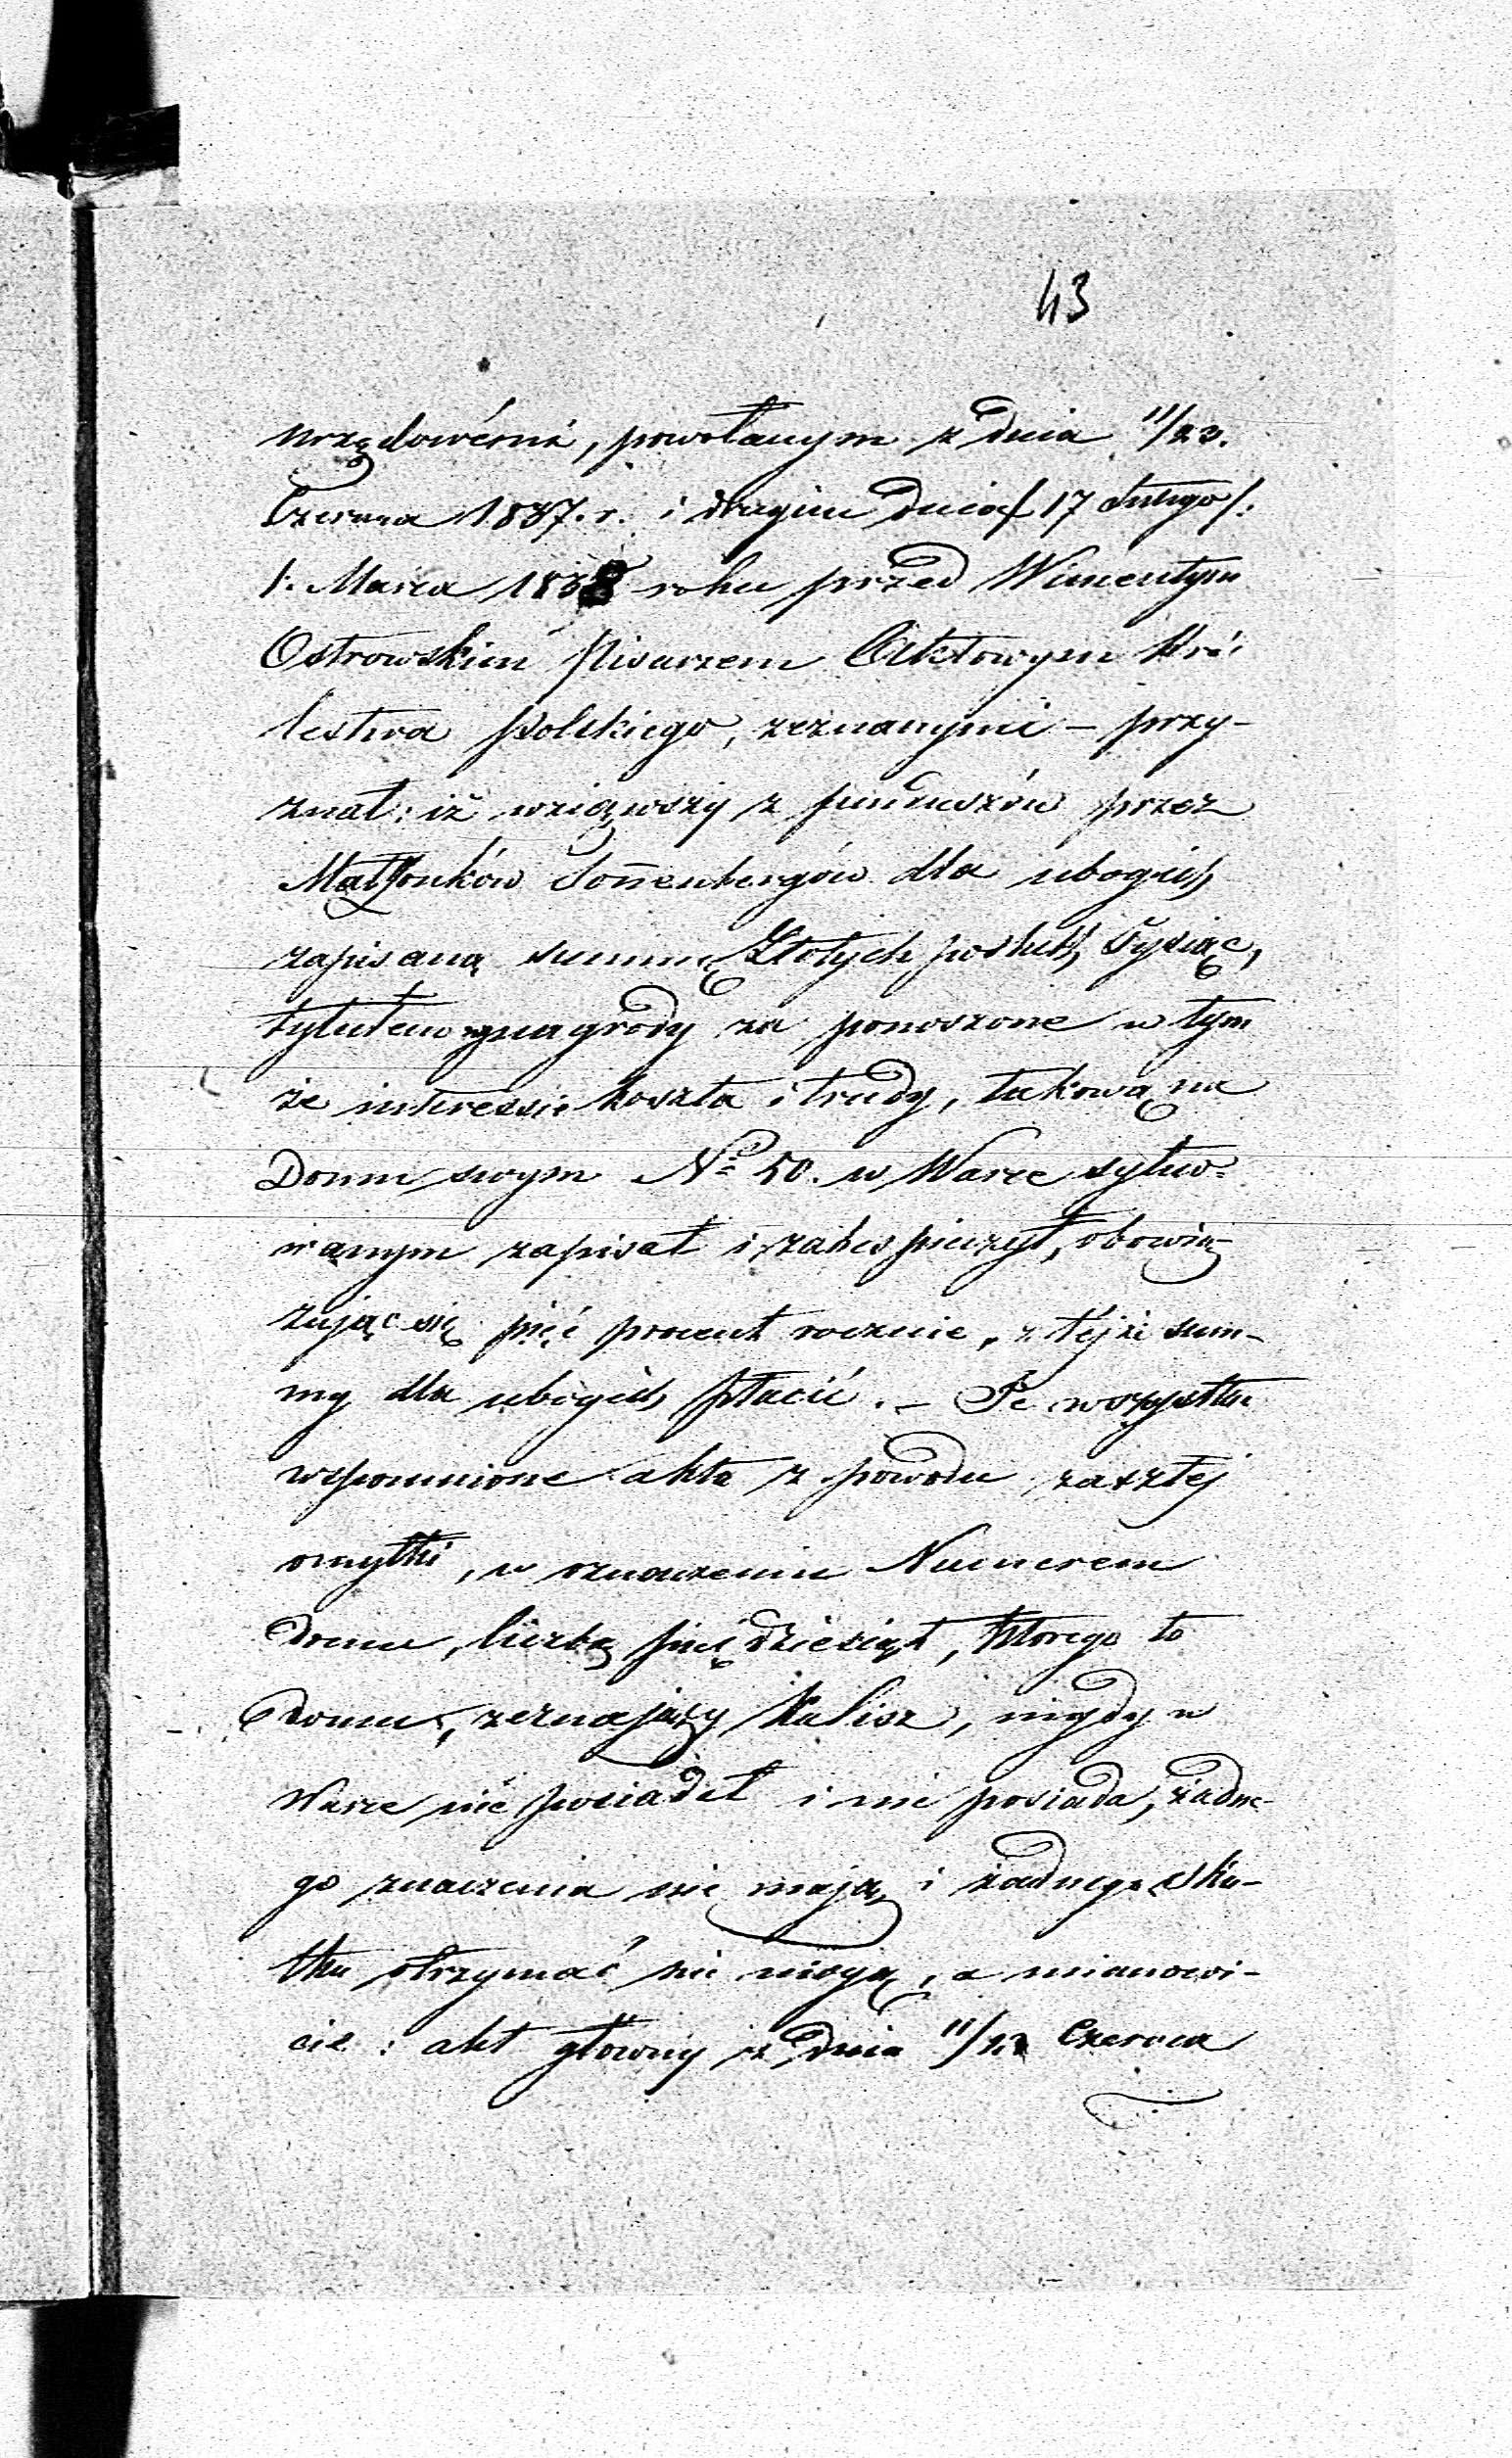 43
urzędownie, powołanym z dnia 11/23.
Czerwca 1837. r. i drugim dnia /17 Lutego/:
1. Marca 1838 roku przed Wincentym
Ostrowskim Pisarzem Aktowym Kró-
lestwa Polskiego, zeznanymi – przy-
znał: iż wziąwszy z funduszów przez
Małżonków Sonnenbergów dla ubogich
zapisaną summę Złotych polskich Tysiąc,
tytułem nagrody za ponoszone w tym
że interessie koszta i trudy, takową na
Domu swym No 50. w Warce sytuo-
wanym zapisał i zabespieczył, obowią-
zując się pięć procent rocznie, z tejże sum-
my dla ubogich płacić. – Te wszystkie
wspomnione akta z powodu zaszłej
omyłki, w oznaczeniu Numerem
Domu, liczbą pięćdziesiąt, którego to
Domu, zeznający Kalisz, nigdy w
Warce nie posiadał i nie posiada, żadne-
go znaczenia nie mają i żadnego sku-
tku otrzymać nie mogą, a mianowi-
cie: akt główny z Dnia 11/23 Czerwca